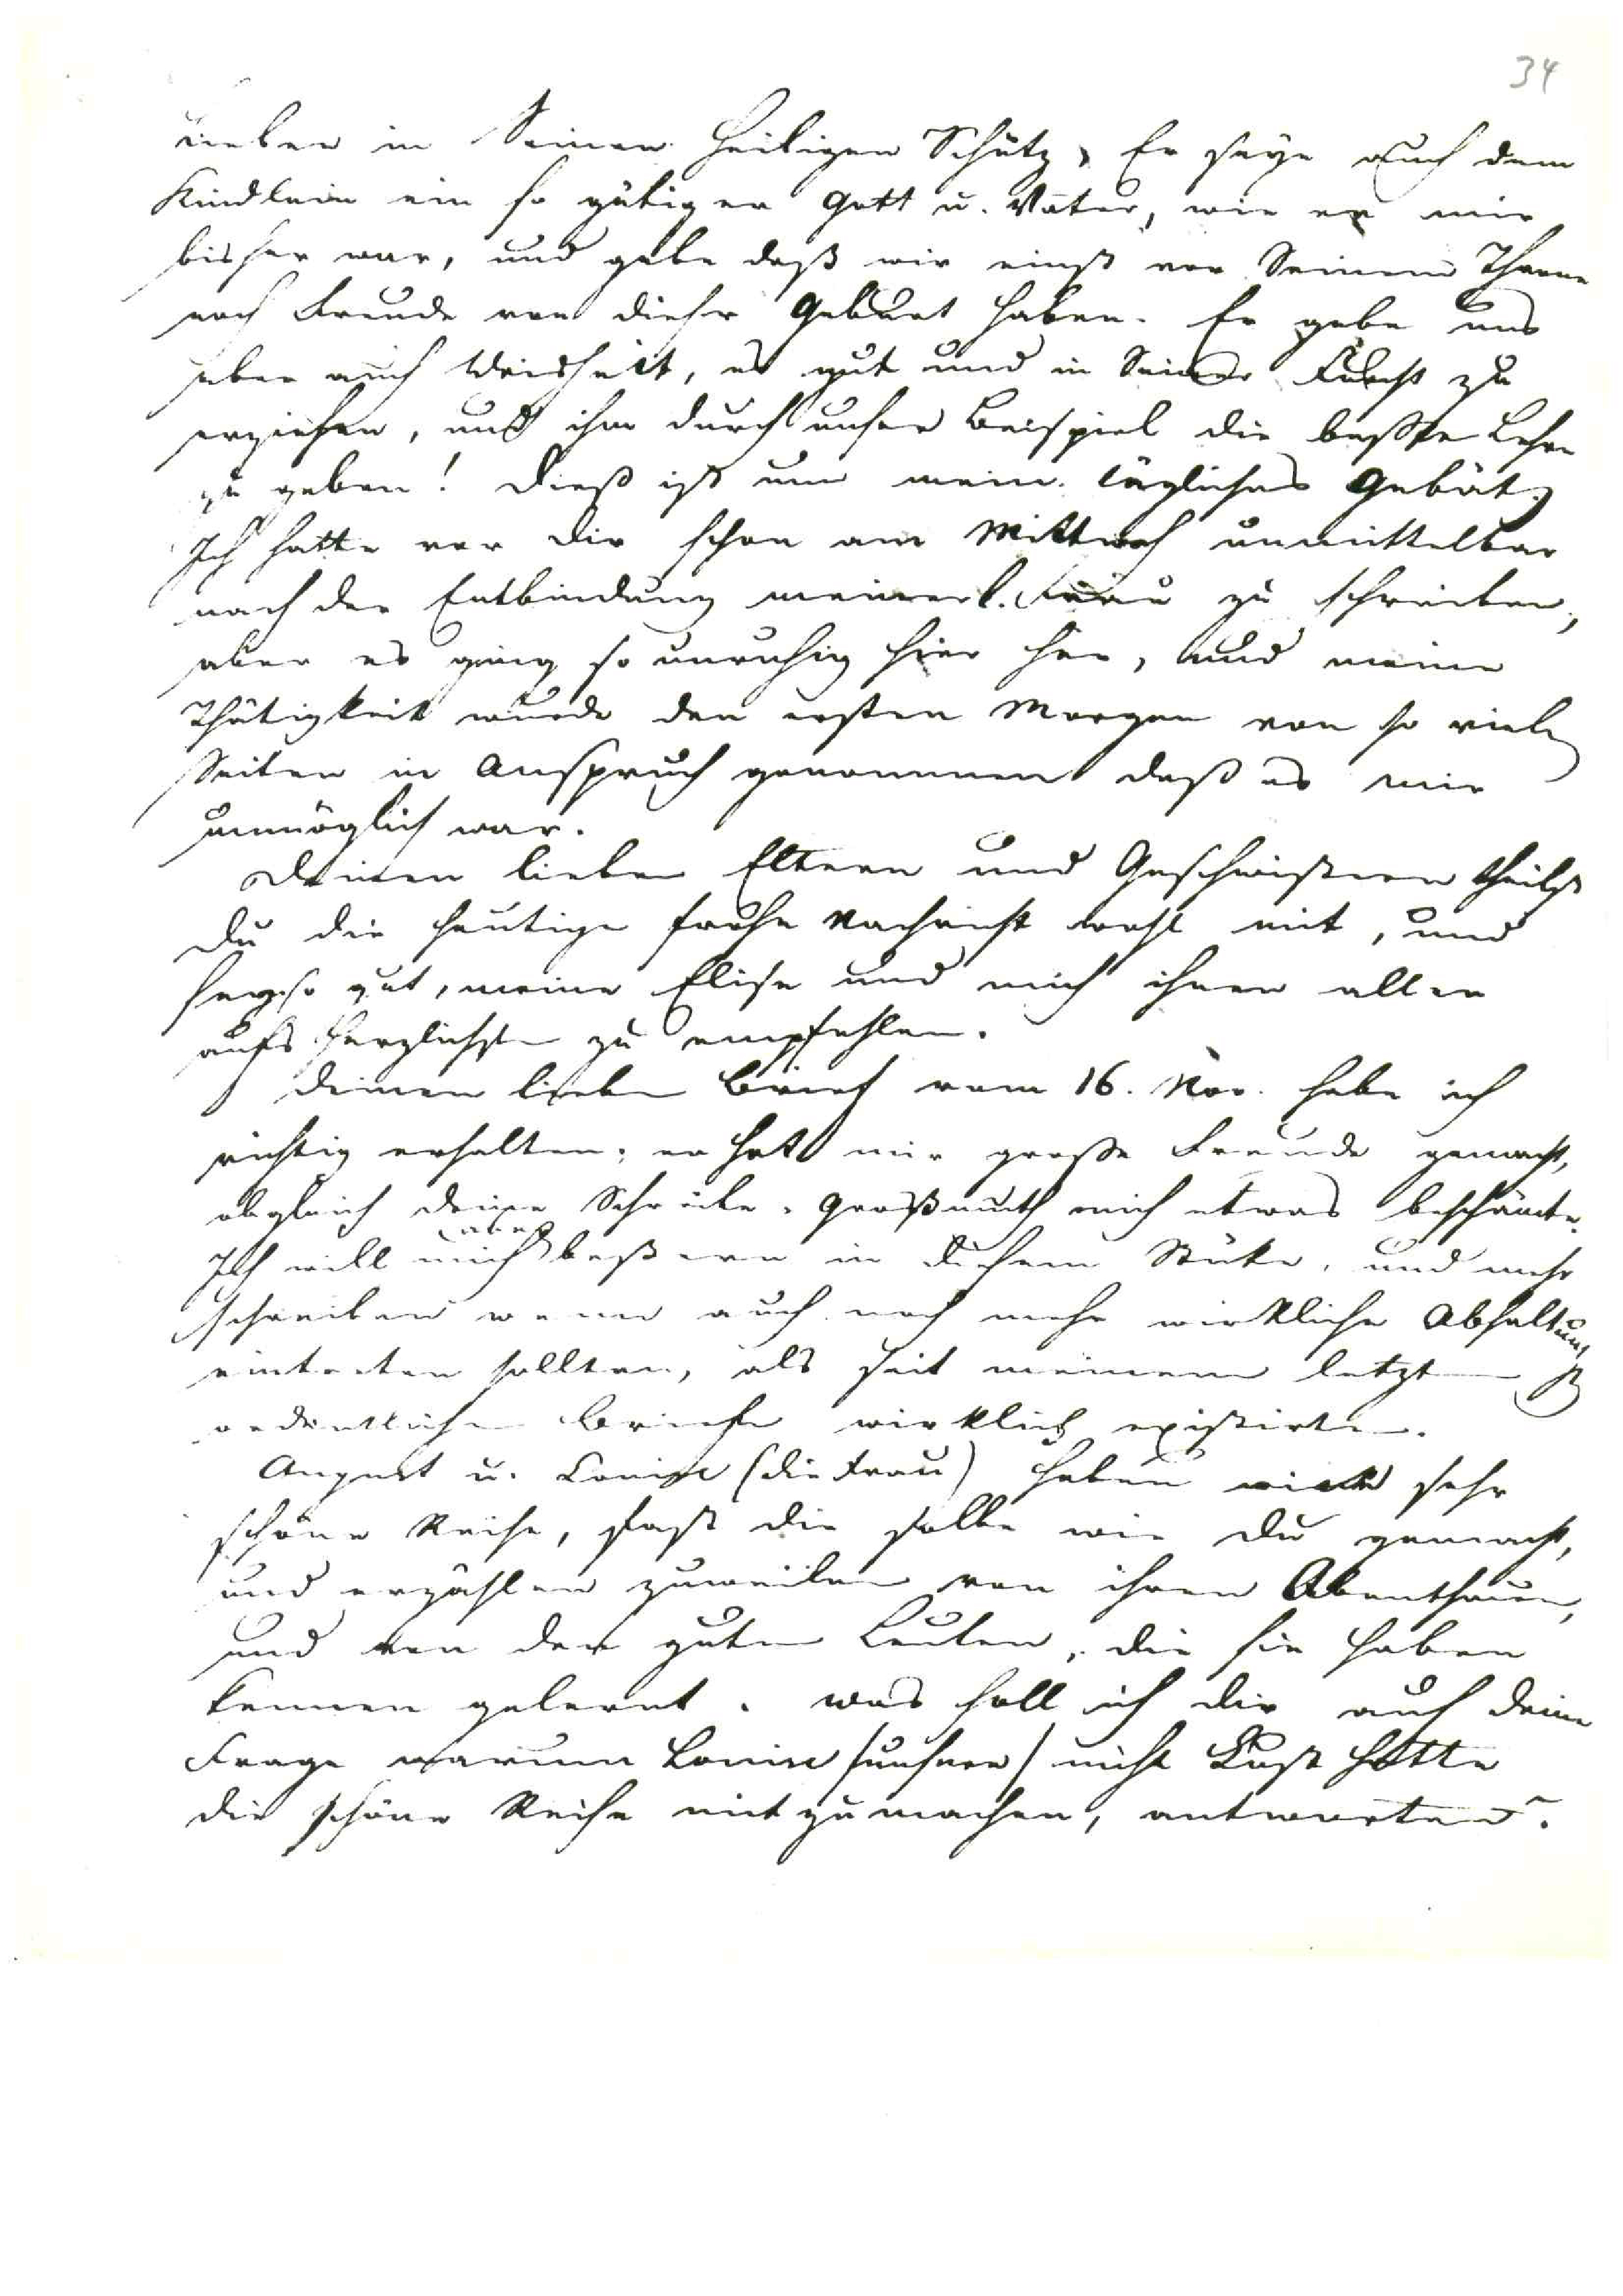 34
lieben in Seinen heiligen Schutz, Er seye auch dem
Kindlein ein so gütiger Gott u. Vater, wie er mir
bisher war, und gebe daß wir einst vor Seinem Throne
noch Freude von dieser Geburt haben. Er gebe uns
aber auch Weisheit, es gut und in Seiner Furcht zu
erziehen, und ihm durch unser Beispiel die beßte Lehre
zu geben! Dieß ist nun mein tägliches Gebät.
Ich hatte vor dir schon am Mittwoch unmittelbar
nach der Entbindung meiner l. Frau zu schreiben,
aber es ging so unruhig hier her, und meine
Thätigkeit wurde den ersten Morgen von so vielen
Seiten in Anspruch genommen daß es mir
unmöglich war.
Deinen lieben Eltern und Geschwistern theilst
du die heutige frohe Nachricht wohl mit, und
seye so gut, meine Elise und mich ihnen allen
aufs herzlichste zu empfehlen.
Deinen lieben Brief vom 16. Nov. habe ich
richtig erhalten; er hat mir große Freude gemacht,
obgleich deine Schreibe-Großmuth mich etwas beschämte.
Ich will mich aber beßern in diesem Stüke, und mehr
schreiben wenn auch noch mehr wirkliche Abhaltung
eintreten sollten, als seit meinem letzten
ordentlichen Briefe wirklich existirten.
August u. Louise (die Frau) haben eine sehr
schöne Reise, fast die selbe wie du gemacht,
und erzählen zuweilen von ihren Abentheuern,
und von den guten Leuten, die sie haben
kennen gelernt. Was soll ich dir auf deine
Frage warum Louise (unsere) nicht Lust hatte
die schöne Reise mitzumachen, antworten?